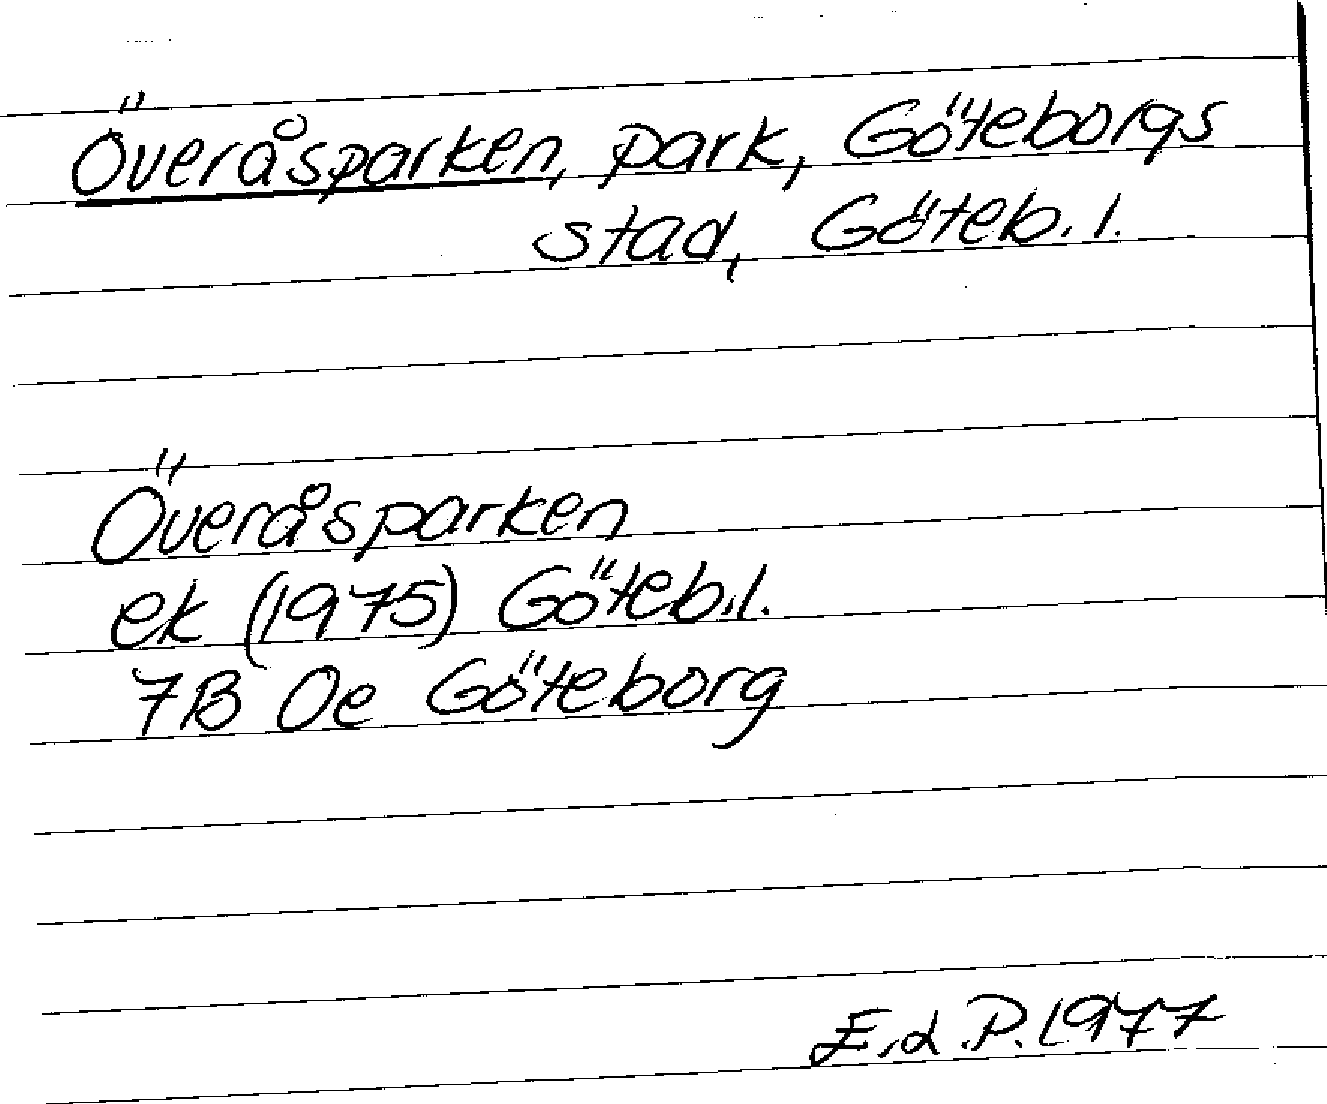 Överåsparken, park, Göteborgs
stad, Göteb. l.
Överåsparken
ek (1975) Göteb.l.
7B 0e Göteborg
E.d.P. 1977